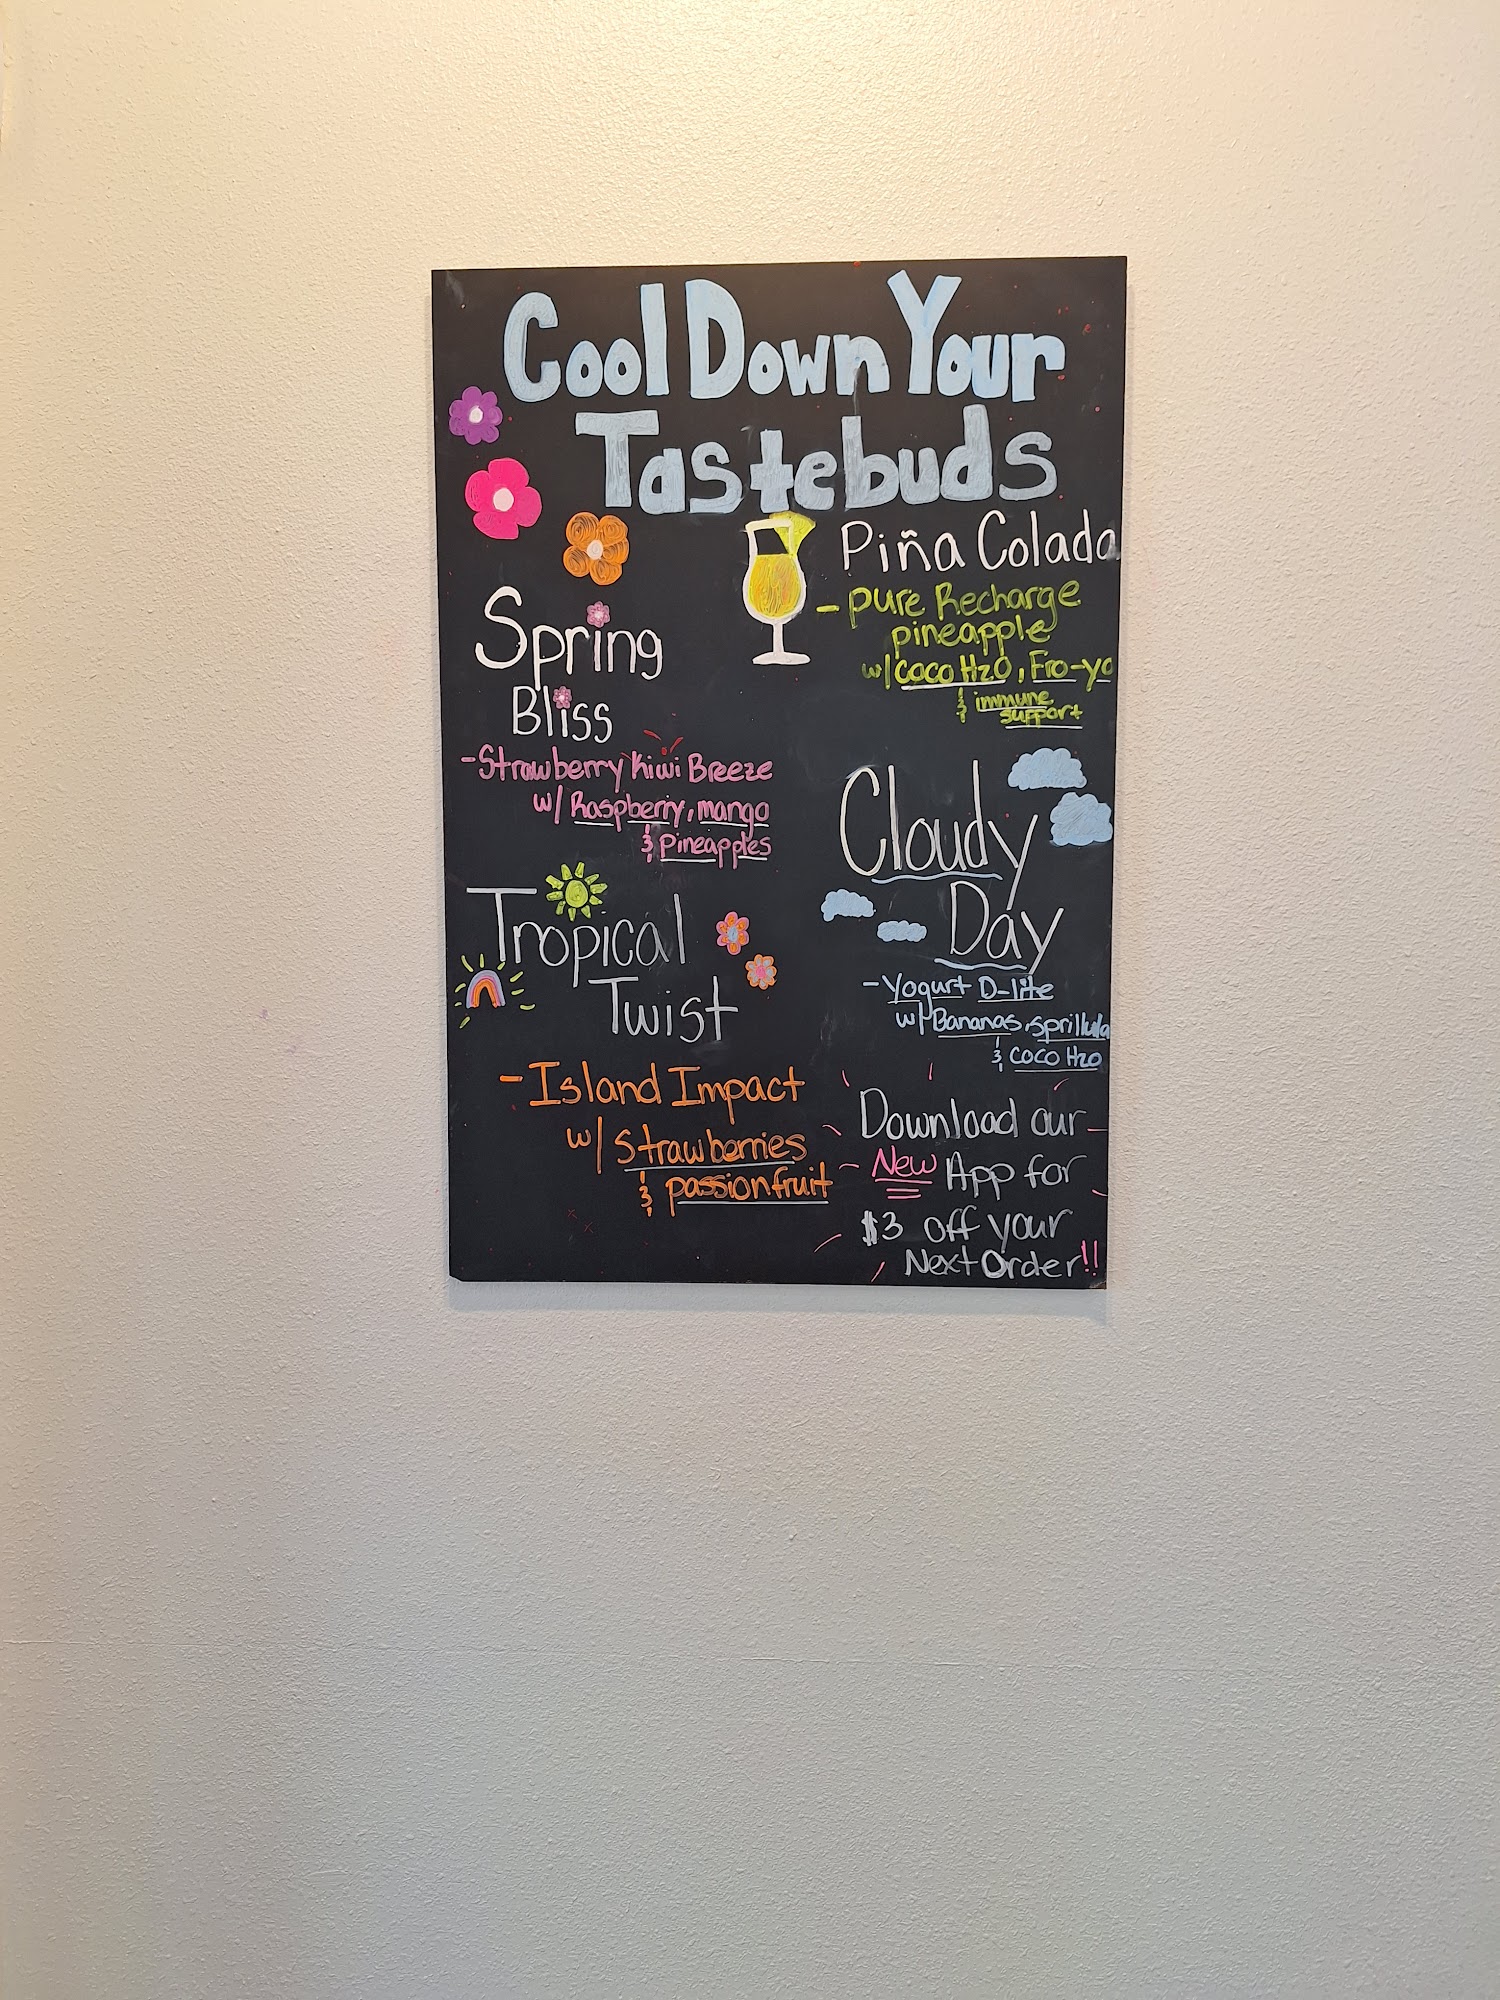 Cool Down Your
Tastebuds
Piña Colada
- pure Recharge
pineapple
w/ coco H2O, Fro-yo
& immune
support
Spring
Bliss
- Strawberry Kiwi Breeze
w/ Raspberry, mango
& Pineapples
Cloudy
Day
- Yogurt D-lite
w/ Bananas, sprillula
& coco H2O
Tropical
Twist
- Island Impact
w/ Strawberries
& passionfruit
Download our
New App for
$3 off your
Next Order!!